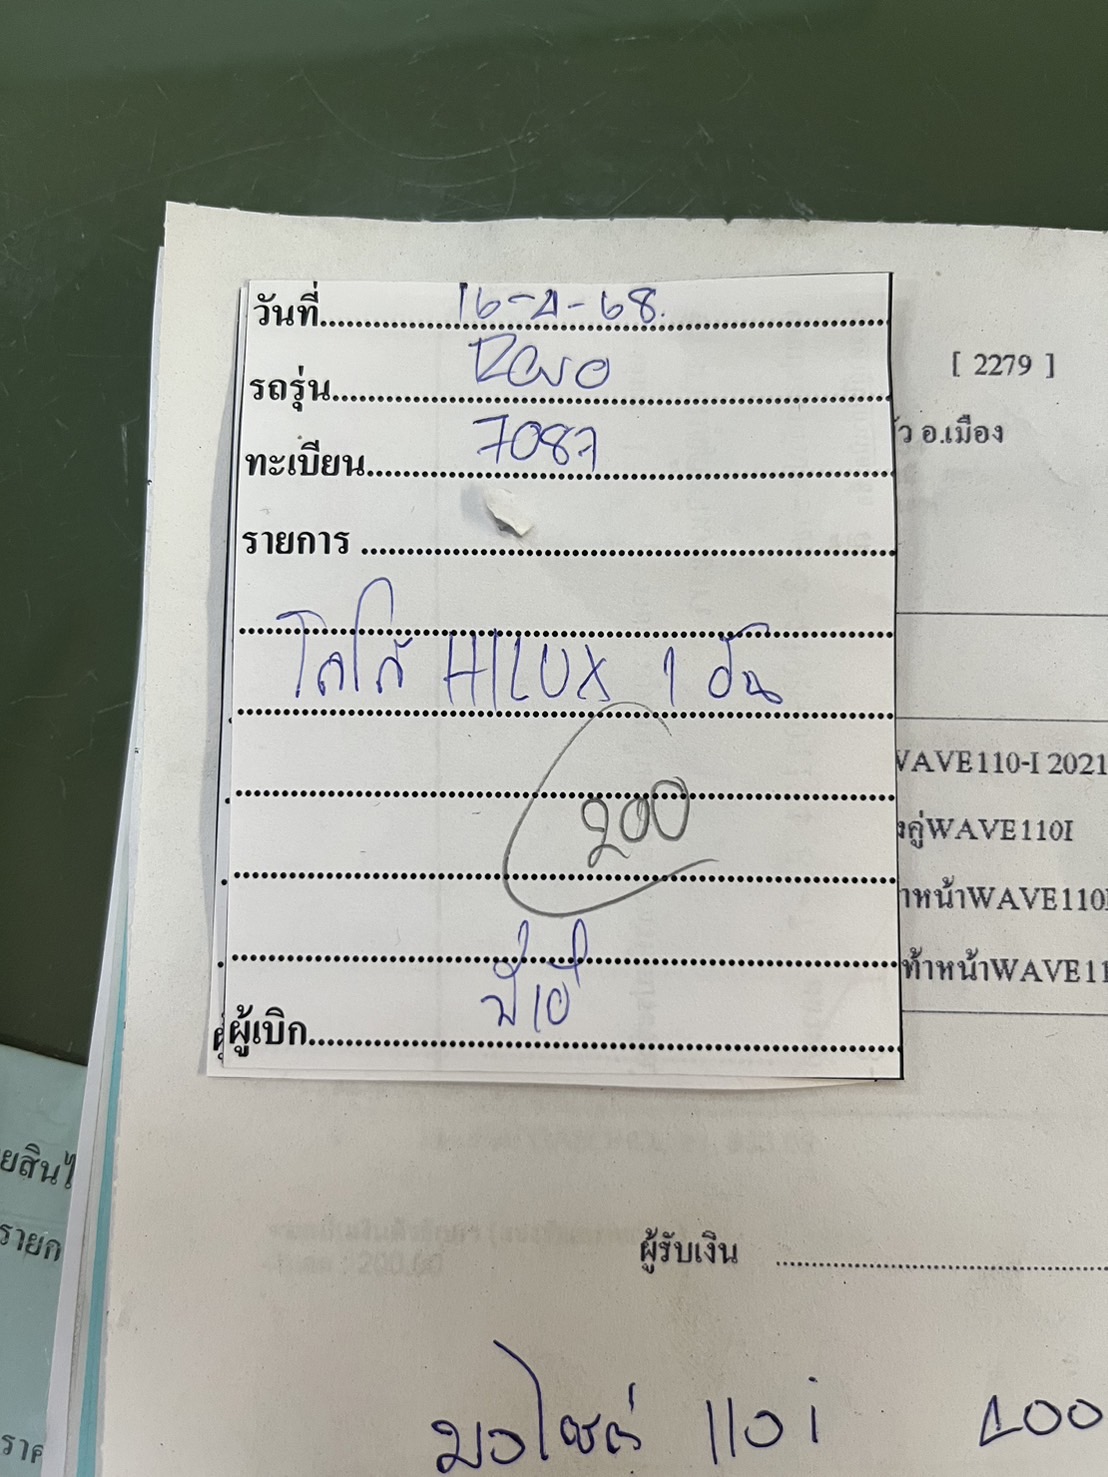 วันที่ 16-4-68.
รถรุ่น Revo
[ 2279 ]
ทะเบียน 7087
ว อ.เมือง
รายการ
โลโก้ HILUX 1 อัน
WAVE110-I 2021
200
งคู่WAVE110I
าหน้าWAVE110I
ท้าหน้าWAVE11
ผู้เบิก
ยสินไ
รายก
ผู้รับเงิน
110i
ราค